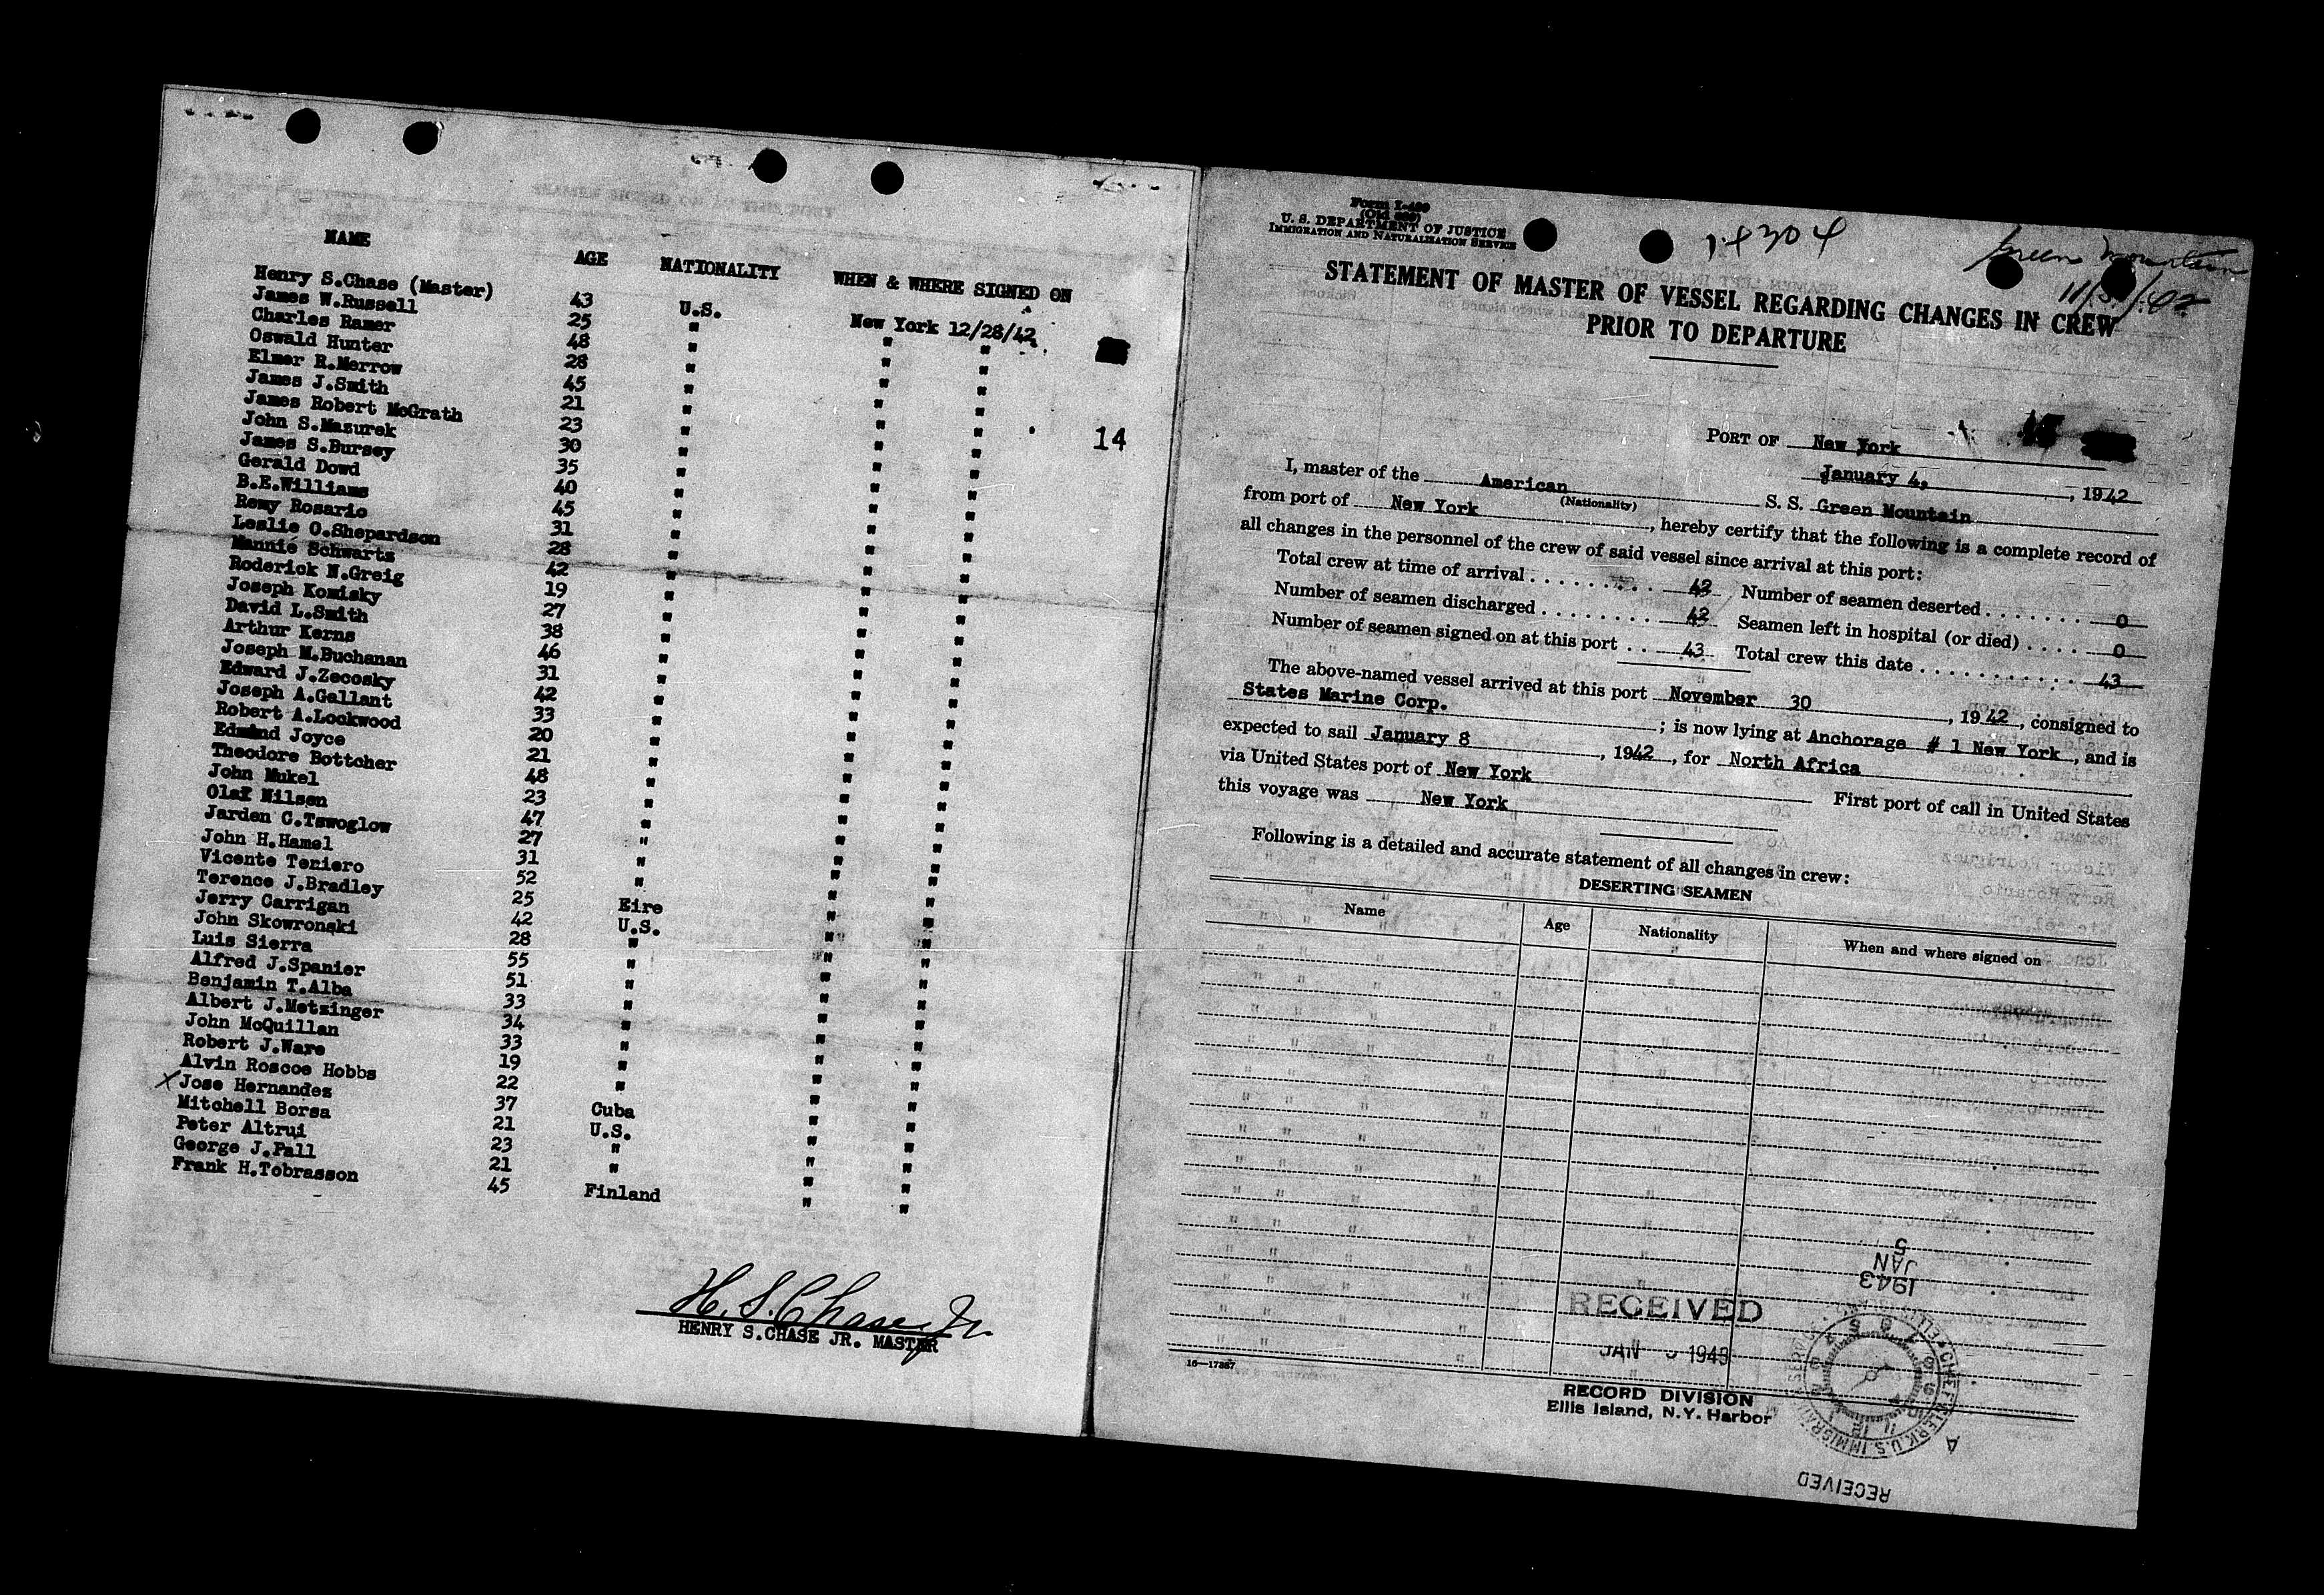 NAME AGE NATIONALITY WHEN & WHERE SIGNED ON
Henry S.Chase (Master) 43 U.S. New York 12/28/42
James W.Russell 25 " " "
Charles Ramer 48 " " "
Oswald Hunter 28 " " "
Elmer R.Merrow 45 " " "
James J.Smith 21 " " "
James Robert McGrath 23 " " "
14
John S.Mazurek 30 " " "
James S.Bursey 35 " " "
Gerald Dowd 40 " " "
B.E.Williams 45 " " "
Remy Rosario 31 " " "
Leslie O.Shepardson 28 " " "
Mannie Schwartz 42 " " "
Roderick N.Greig 19 " " "
Joseph Komisky 27 " " "
David L.Smith 38 " " "
Arthur Kerns 46 " " "
Joseph M.Buchanan 31 " " "
Edward J.Zecosky 42 " " "
Joseph A.Gallant 33 " " "
Robert A.Lockwood 20 " " "
Edmund Joyce 21 " " "
Theodore Bottcher 48 " " "
John Mukel 23 " " "
Olaf Nilsen 47 " " "
Jarden C.Tswoglow 27 " " "
John H.Hamel 31 " " "
Vicente Teniero 52 " " "
Terence J.Bradley 25 Eire " "
Jerry Carrigan 42 U.S. " "
John Skowronski 28 " " "
Luis Sierra 55 " " "
Alfred J.Spanier 51 " " "
Benjamin T.Alba 33 " " "
Albert J.Metzinger 34 " " "
John McQuillan 33 " " "
Robert J.Ware 19 " " "
Alvin Roscoe Hobbs 22 " " "
X Jose Hernandez 37 Cuba " "
Mitchell Borsa 21 U.S. " "
Peter Altrui 23 " " "
George J.Pall 21 " " "
Frank H.Tobrasson 45 Finland " "
H. S. Chase Jr.
HENRY S.CHASE JR. MASTER
U. S. DEPARTMENT OF JUSTICE
IMMIGRATION AND NATURALIZATION SERVICE
Green Mountain
STATEMENT OF MASTER OF VESSEL REGARDING CHANGES IN CREW
PRIOR TO DEPARTURE
PORT OF New York
January 4, , 1942
I, master of the American S. S. Green Mountain
(Nationality)
from port of New York , hereby certify that the following is a complete record of
all changes in the personnel of the crew of said vessel since arrival at this port:
Total crew at time of arrival . . . . . . . . . 42 Number of seamen deserted . . . . . . . 0
Number of seamen discharged . . . . . . . . 42 Seamen left in hospital (or died) . . . . 0
Number of seamen signed on at this port . . 43 Total crew this date . . . . . . . . . . 43
The above-named vessel arrived at this port November 30 , 1942 , consigned to
States Marine Corp. ; is now lying at Anchorage # 1 New York , and is
expected to sail January 8 , 1942 , for North Africa
via United States port of New York First port of call in United States
this voyage was New York
Following is a detailed and accurate statement of all changes in crew:
DESERTING SEAMEN
Name Age Nationality When and where signed on
1943
JAN
5
RECEIVED
JAN 5 1943
RECORD DIVISION
Ellis Island, N.Y. Harbor
16—17387
RECEIVED